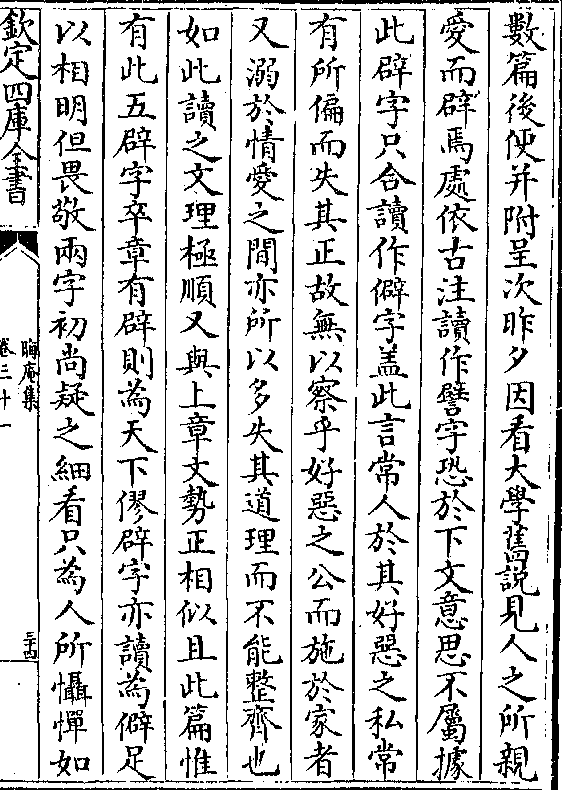 數篇後便并附呈次昨夕因看大學舊說見人之所親
愛而辟焉處依古注讀作譬字恐於下文意思不屬據
此辟字只合讀作僻字蓋此言常人於其好惡之私常
有所偏而失其正故無以察乎好惡之公而施於家者
又溺於情愛之間亦所以多失其道理而不能整齊也
如此讀之文理極順又與上章文勢正相似且此篇惟
有此五辟字卒章有辟則為天下僇辟字亦讀為僻足
以相明但畏敬兩字初尚疑之細看只為人所懾憚如
欽定四庫全書
晦庵集
卷三十一
三十四